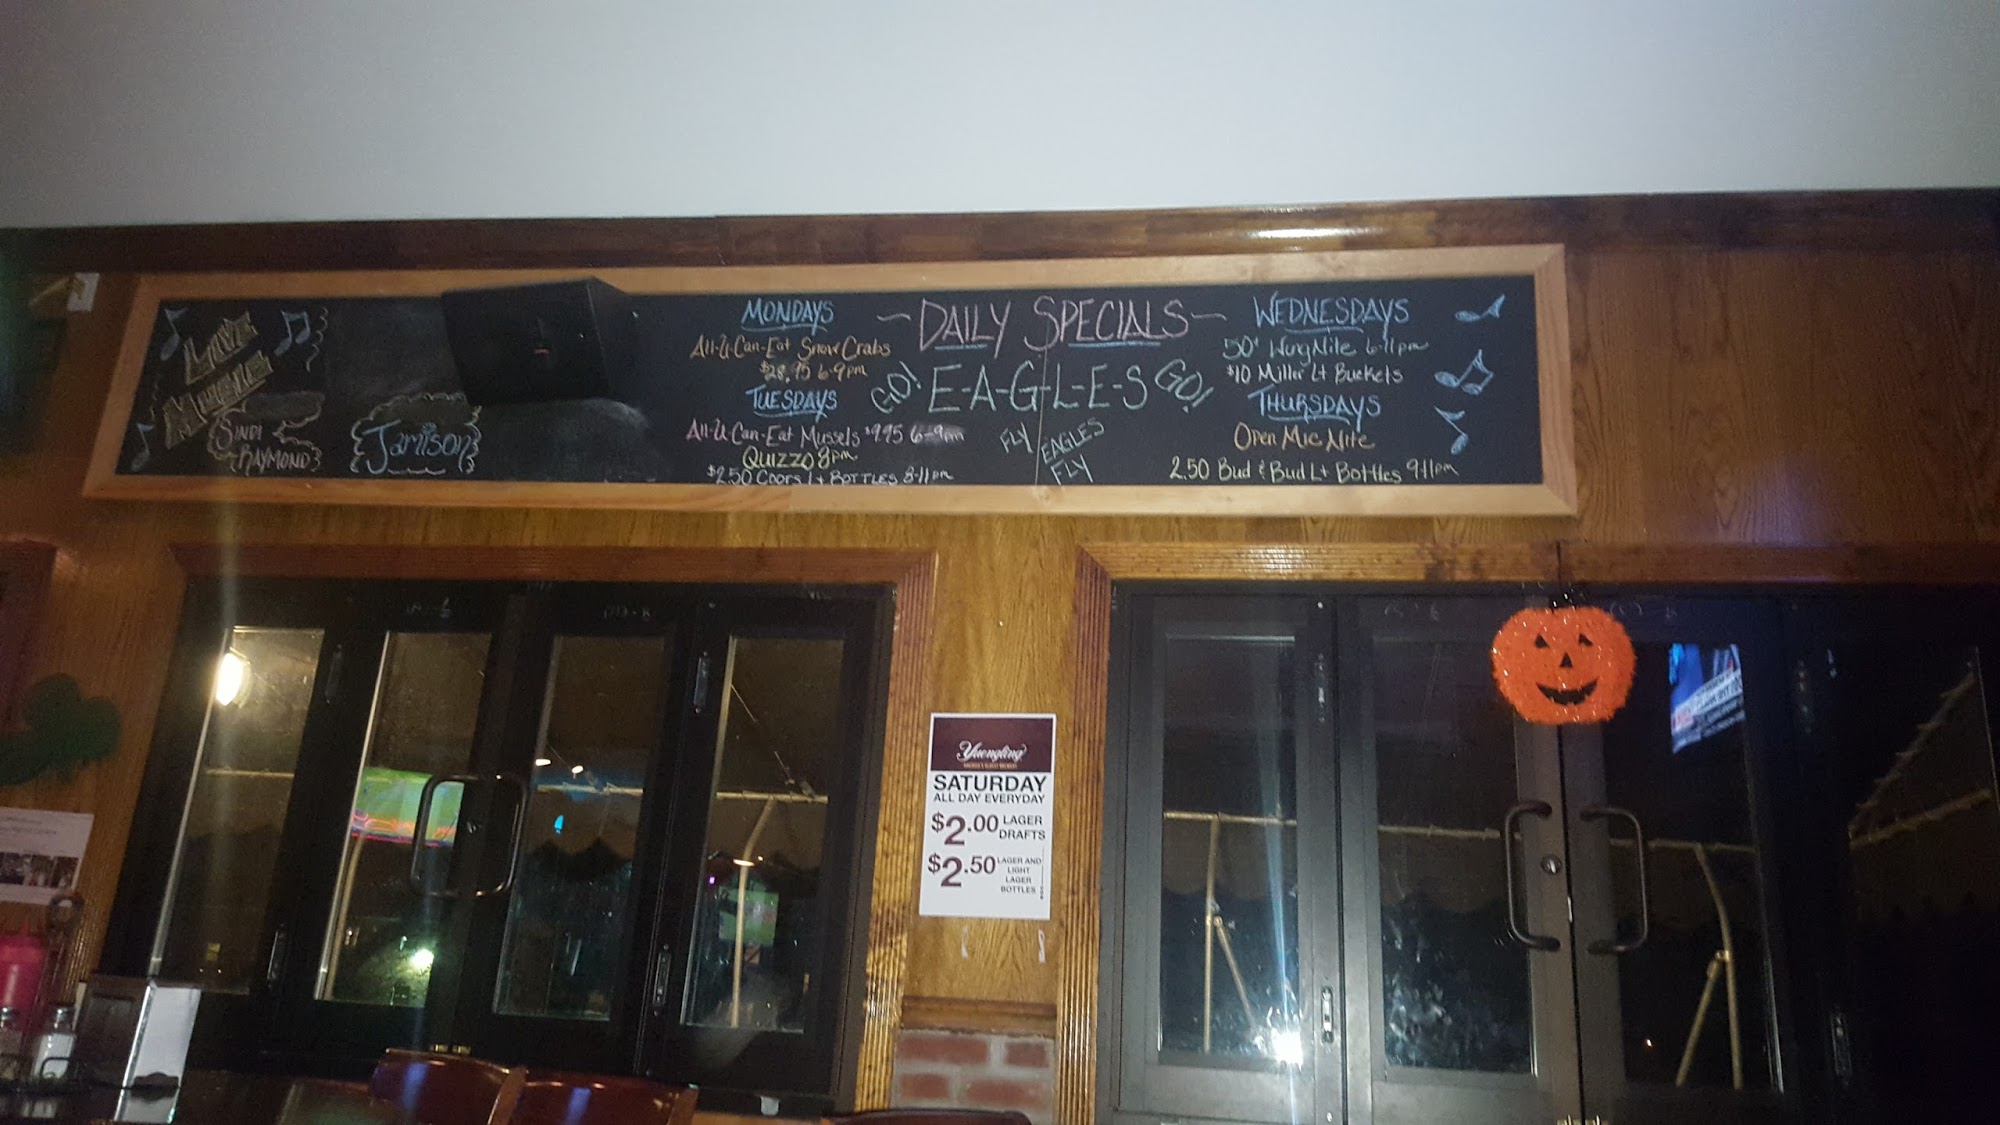 LIVE
MUSIC
SINDI
RAYMOND
Jamison
MONDAYS
All-U-Can-Eat Snow Crabs
$28.95 6-9pm
TUESDAYS
All-U-Can-Eat Mussels $9.95 6-9pm
QUIZZO 8pm
$2.50 COORS Lt BOTTLES 8-11pm
~DAILY SPECIALS~
GO! E-A-G-L-E-S GO!
FLY EAGLES
FLY
WEDNESDAYS
50¢ Wing Nite 6-11pm
$10 Miller Lt Buckets
THURSDAYS
Open Mic Nite
2.50 Bud & Bud Lt Bottles 9-11pm
Yuengling
SATURDAY
ALL DAY EVERYDAY
$2.00 LAGER
DRAFTS
$2.50 LAGER AND
LIGHT
LAGER
BOTTLES